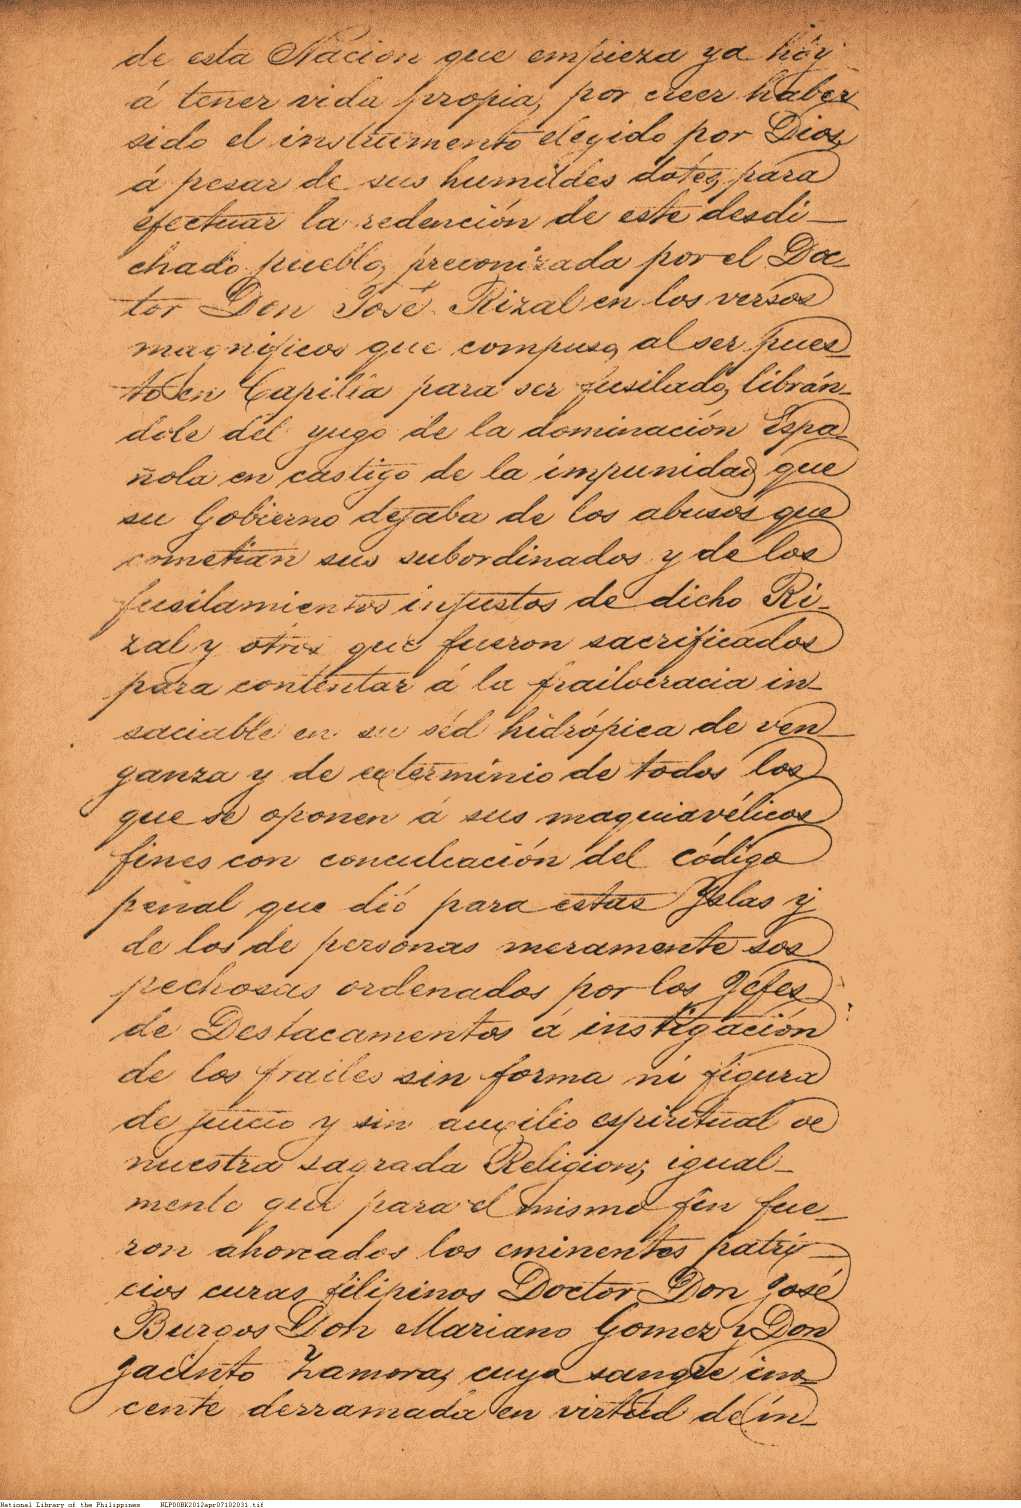 de esta Nacion que empieza ya hoy
á tener vida propia, por creer haber
sido el instrumento elegido por Dios,
á pesar de sus humildes dótes, para
efectuar la redención de este desdi-
chado pueblo, preconizada por el Doc-
tor Don José Rizal en los versos
magnificos que compuso, al ser pues-
to en Capilla para ser fusilado, librán-
dole del yugo de la dominación Espa-
ñola en castigo de la impunidad que
su Gobierno dejaba de los abusos que
cometian sus subordinados y de los
fusilamientos injustos de dicho Ri-
zal y otros que fueron sacrificados
para contentar á la frailocracia in-
saciable en su séd hidrópica de ven-
ganza y de exterminio de todos los
que se oponen á sus maquiavélicos
fines con conculcación del código
penal que dió para estas Yslas y
de los de personas meramente sos
pechosas ordenados por los Jefes
de Destacamentos á instigación
de los frailes sin forma ni figura
de juicio y sin auxilio espiritual de
nuestra sagrada Religion; igual-
mente que para el mismo fin fue-
ron ahorcados los eminentes patri-
cios curas filipinos Doctor Don José
Burgos Don Mariano Gomez y Don
Jacinto Zamora, cuya sangre ino-
cente derramada en virtud de in-
National Library of the Philippines NLPOOBK2012apr07102031.tif